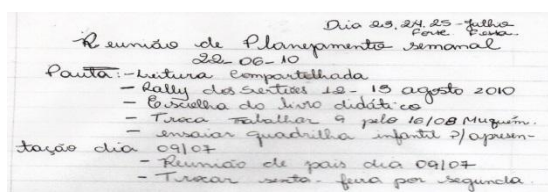 Dia 23, 24, 25 - Julho
Fora Festa.
Reunião de Planejamento semanal
22-06-10
Pauta: - Leitura Compartilhada
- Rally dos Sertões 12 - 13 agosto 2010
- Escolha do livro didático
- Troca trabalhar 9 pelo 16/08 Muquém.
- ensaiar quadrilha infantil p/ apresen-
tação dia 09/07
- Reunião de pais dia 09/07
- Trocar sexta-feira por segunda.